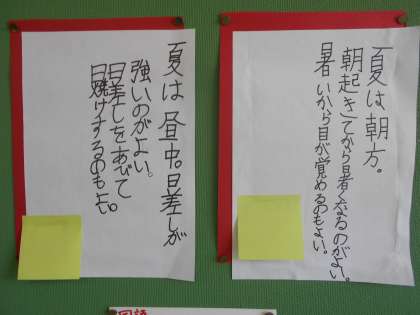 夏は朝方。
朝起きてから暑くなるのがよい。
暑いから目が覚めるのもよい。
夏は昼中。日差しが
強いのがよい。
日差しをあびて
日焼けするのもよい。
国語